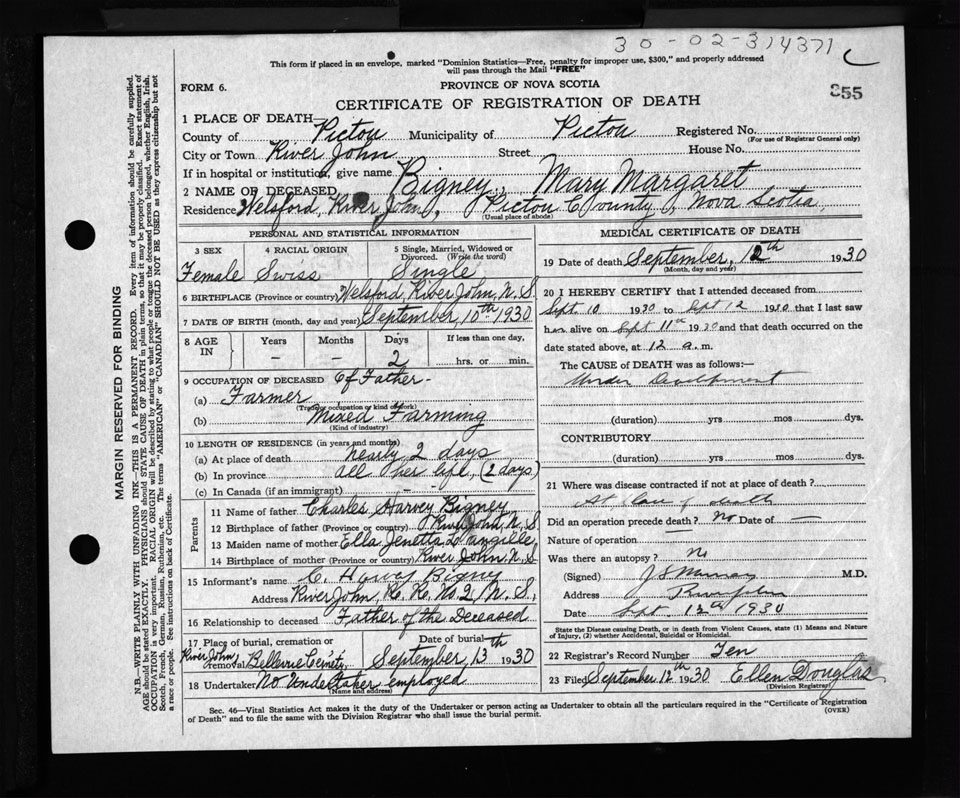 30-02-314371
C
This form if placed in an envelope, marked "Dominion Statistics—Free, penalty for improper use, $300," and properly addressed
will pass through the Mail "FREE"
FORM 6.
PROVINCE OF NOVA SCOTIA
355
CERTIFICATE OF REGISTRATION OF DEATH
1 PLACE OF DEATH
County of Pictou Municipality of Pictou Registered No.
(For use of Registrar General only)
City or Town River John Street House No.
If in hospital or institution, give name
2 NAME OF DECEASED Bigney, Mary Margaret
Residence Welsford, River John, Pictou County, Nova Scotia,
(Usual place of abode)
PERSONAL AND STATISTICAL INFORMATION
3 SEX 4 RACIAL ORIGIN 5 Single, Married, Widowed or Divorced. (Write the word)
Female Swiss Single
6 BIRTHPLACE (Province or country) Welsford, River John, N. S.
7 DATE OF BIRTH (month, day and year) September, 10th 1930
8 AGE IN Years Months Days If less than one day,
— — 2 hrs. or min.
9 OCCUPATION OF DECEASED Of Father-
(a) Farmer
(Trade, occupation or kind of work)
(b) Mixed Farming
(Kind of industry)
10 LENGTH OF RESIDENCE (in years and months)
(a) At place of death nearly 2 days
(b) In province all her life, (2 days)
(c) In Canada (if an immigrant) - -
Parents
11 Name of father Charles Harvey Bigney
12 Birthplace of father (Province or country) River John, N. S.
13 Maiden name of mother Ella Jenetta Langille
14 Birthplace of mother (Province or country) River John, N. S
15 Informant's name C. Harvey Bigney
Address River John, R. R. No. 2, N. S.
16 Relationship to deceased Father of the Deceased
17 Place of burial, cremation or removal Date of burial
River John, Bellevue Cemet'y September, 13th 1930
18 Undertaker No Undertaker employed
(Name and address)
MEDICAL CERTIFICATE OF DEATH
19 Date of death September, 12th 1930
(Month, day and year)
20 I HEREBY CERTIFY that I attended deceased from
Sept. 10 1930 to Sept 12 1930 that I last saw
her alive on Sept 11th 1930 and that death occurred on
date stated above, at 12 a. m.
The CAUSE OF DEATH was as follows:—
Under Development
(duration) yrs mos dys.
CONTRIBUTORY
(duration) yrs mos dys.
21 Where was disease contracted if not at place of death?
At place of death
Did an operation precede death? No Date of —
Nature of operation
Was there an autopsy? No
(Signed) J S Murray M.D.
Address River John
Date Sept 12th 1930
State the Disease causing Death, or in death from Violent Causes, state (1) Means and Nature of Injury, (2) whether Accidental, Suicidal or Homicidal.
22 Registrar's Record Number Ten
23 Filed September 12th 1930 Ellen Douglas
(Division Registrar)
Sec. 46—Vital Statistics Act makes it the duty of the Undertaker or person acting as Undertaker to obtain all the particulars required in the "Certificate of Registration
of Death" and to file the same with the Division Registrar who shall issue the burial permit.
(OVER)
MARGIN RESERVED FOR BINDING
N.B.—WRITE PLAINLY WITH UNFADING INK—THIS IS A PERMANENT RECORD. Every item of information should be carefully supplied.
AGE should be stated EXACTLY. PHYSICIANS should STATE CAUSE OF DEATH in plain terms, so that it may be properly classified. Exact statement of
OCCUPATION is very important. RACIAL ORIGIN will be described by stating to what people or tongue the deceased person belonged, whether English, Irish,
Scotch, French, German, Russian, Ruthenian, etc. The terms "AMERICAN" or "CANADIAN" SHOULD NOT BE USED as they express citizenship but not
a race or people. See instructions on back of Certificate.